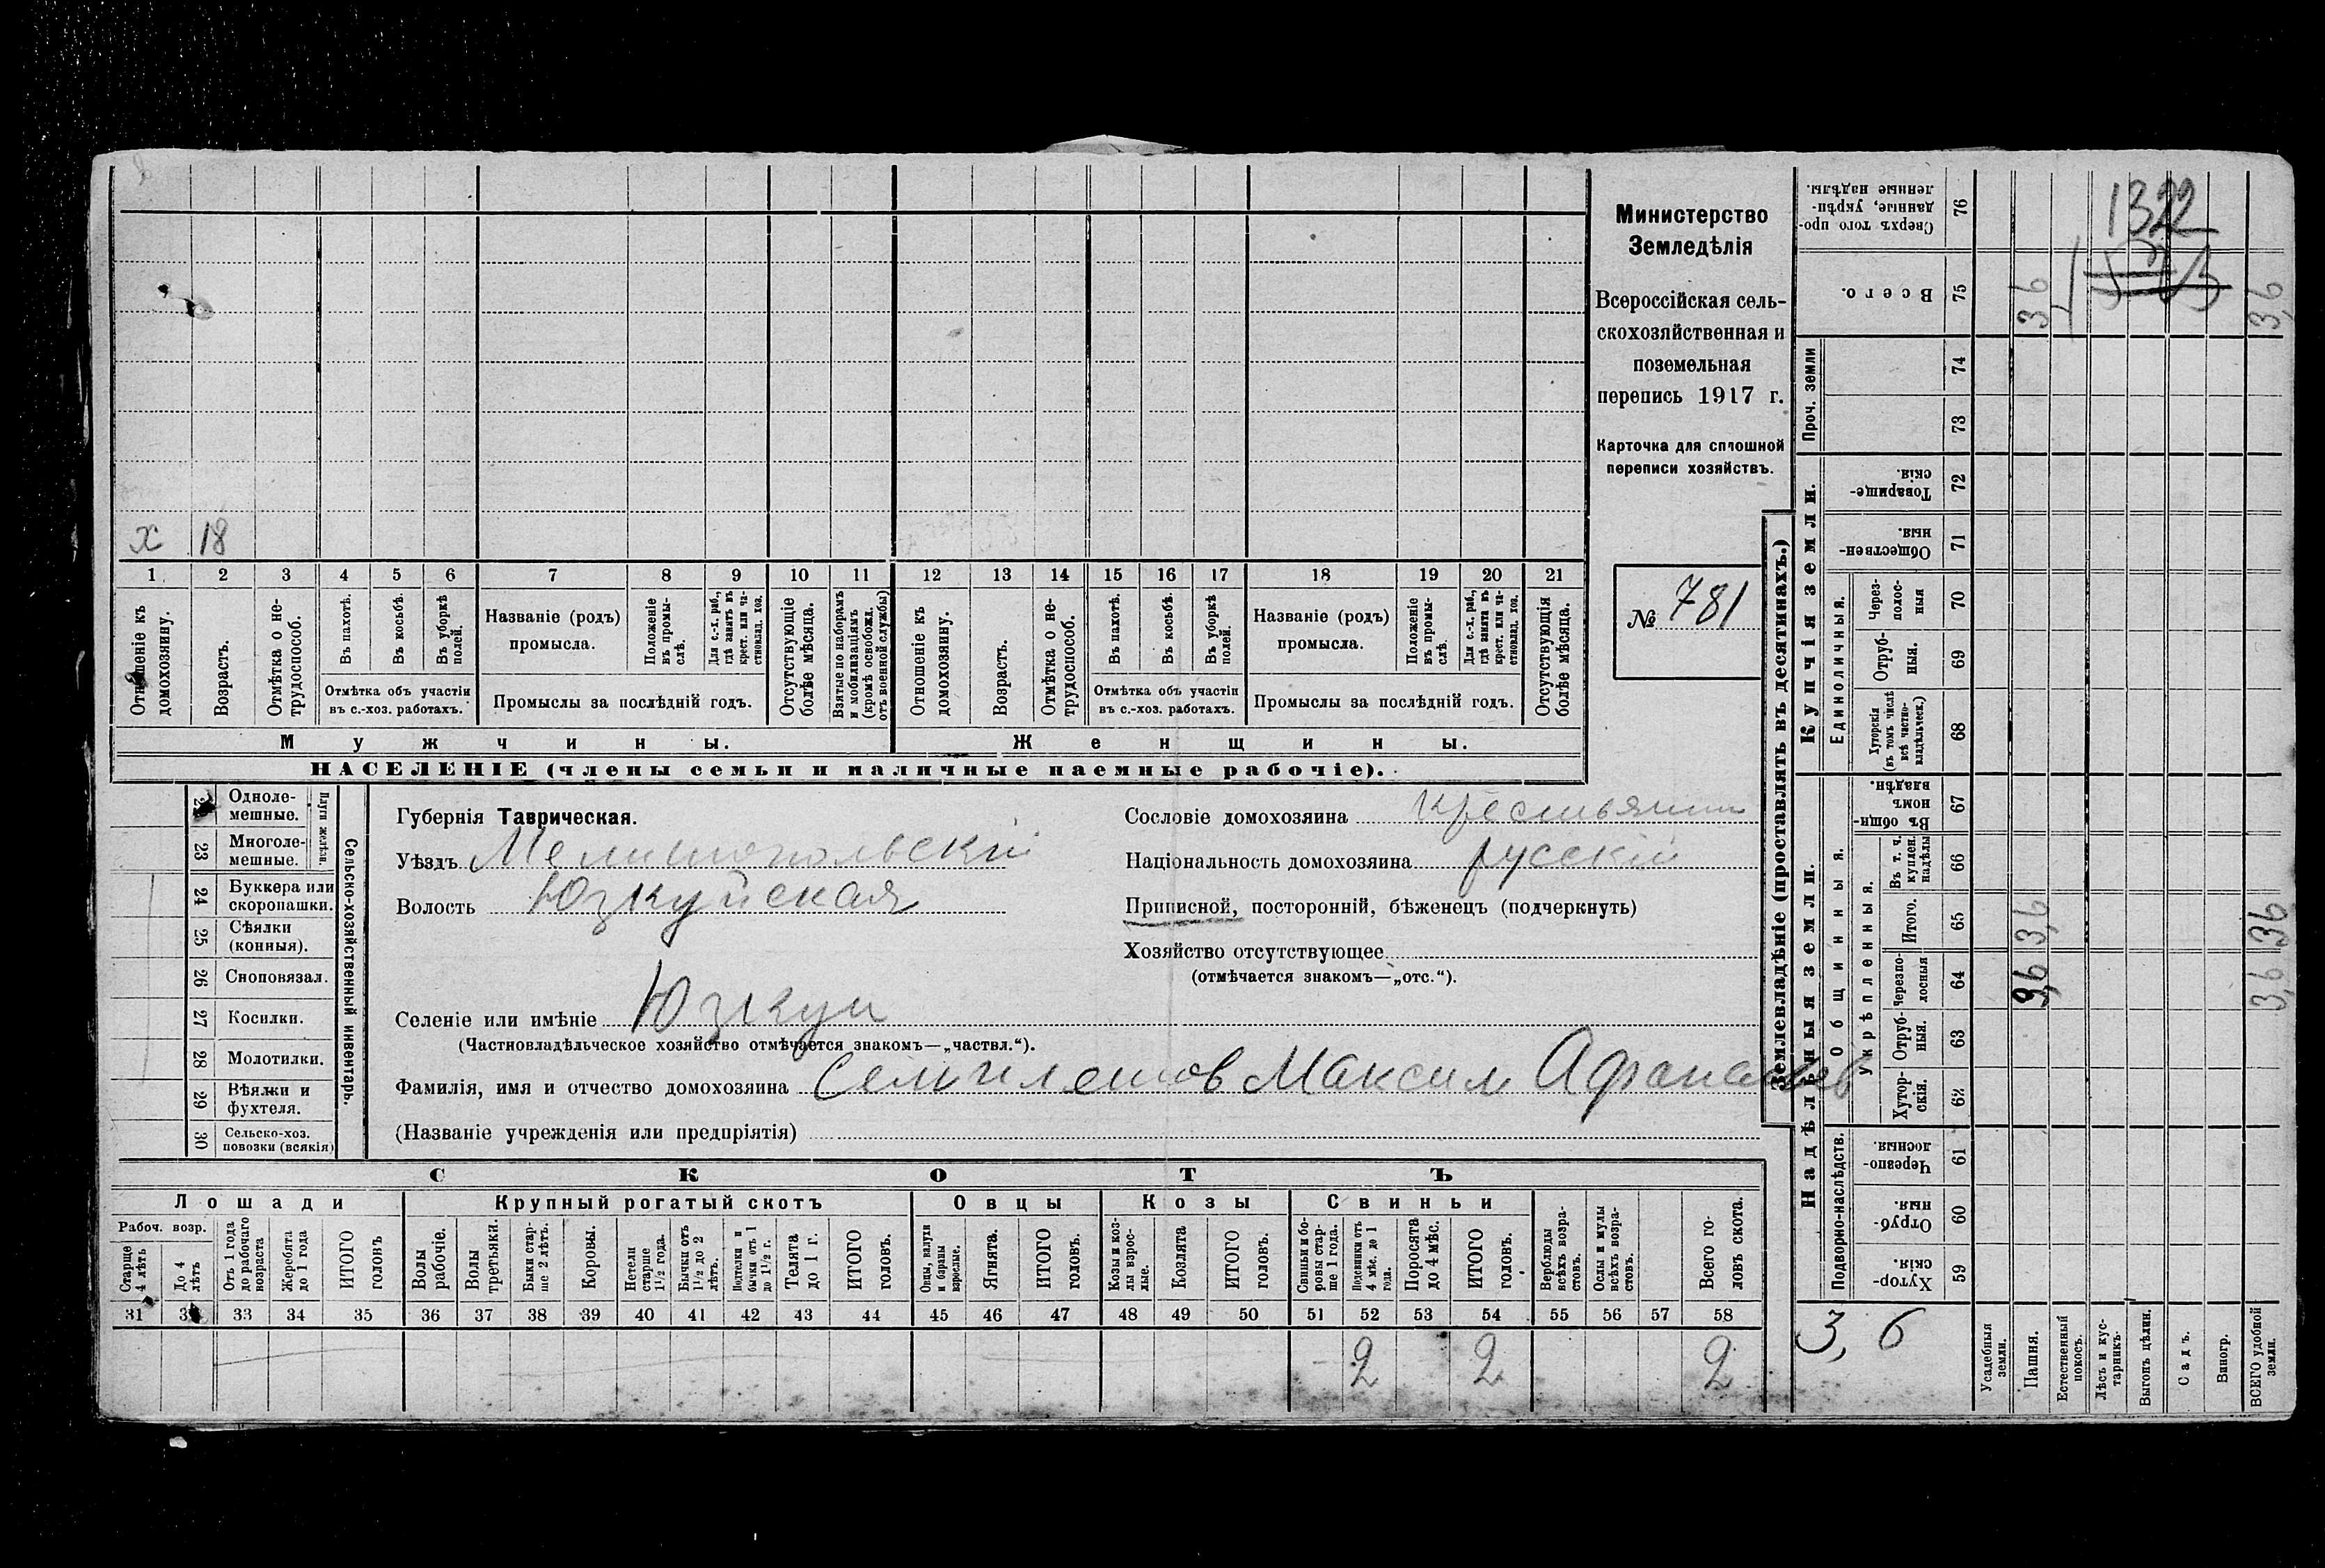 Министерство
Земледѣлія
Всероссійская сель-
скохозяйственная и
поземельная
перепись 1917 г.
Карточка для сплошной
переписи хозяйствъ.
№ 781
х 18
1 2 3 4 5 6 7 8 9 10 11 12 13 14 15 16 17 18 19 20 21
Отношеніе къ домохозяину.
Возрастъ.
Отмѣтка о не-трудоспособ.
Въ пахотѣ.
Въ косьбѣ.
Въ уборкѣ полей.
Отмѣтка объ участіи
въ с.-хоз. работахъ.
Названіе (родъ)
промысла.
Положеніе въ промы-слѣ.
Для с.-х. раб., гдѣ занятъ въ крест. или ча-стновлад. хоз.
Промыслы за послѣдній годъ.
Отсутствующіе болѣе мѣсяца.
Взятые по наборамъ и мобилизаціямъ (кромѣ освобожд. отъ военной службы)
Отношеніе къ домохозяину.
Возрастъ.
Отмѣтка о не-трудоспособ.
Въ пахотѣ.
Въ косьбѣ.
Въ уборкѣ полей.
Отмѣтка объ участіи
въ с.-хоз. работахъ.
Названіе (родъ)
промысла.
Положеніе въ промы-слѣ.
Для с.-х. раб., гдѣ занята въ крест. или ча-стновлад. хоз.
Промыслы за послѣдній годъ.
Отсутствующія болѣе мѣсяца.
Мужчины. Женщины.
НАСЕЛЕНІЕ (члены семьи и наличные наемные рабочіе).
Сельско-хозяйственный инвентарь.
Плуги желѣзн.
Одноле-
мешные.
23 Многоле-
мешные.
24 Буккера или
скоропашки.
25 Сѣялки
(конныя).
26 Сноповязал.
27 Косилки.
28 Молотилки.
29 Вѣялки и
фухтеля.
30 Сельско-хоз.
повозки (всякія)
Губернія Таврическая.
Уѣздъ Мелитопольскій
Волость Юзкуйская
Сословіе домохозяина крестьянин
Національность домохозяина русскій
Приписной, посторонній, бѣженецъ (подчеркнуть)
Хозяйство отсутствующее
(отмѣчается знакомъ—„отс.“).
Селеніе или имѣніе Юзкуи
(Частновладѣльческое хозяйство отмѣчается знакомъ—„частвл.“).
Фамилія, имя и отчество домохозяина Семиглетов Максим Афанасьев
(Названіе учрежденія или предпріятія)
СКОТЪ
Лошади Крупный рогатый скотъ Овцы Козы Свиньи
Рабоч. возр.
Старше 4 лѣтъ
До 4 лѣтъ
Отъ 1 года до рабочаго возраста
Жеребята до 1 года
ИТОГО головъ
Волы рабочіе.
Волы третьяки.
Быки стар-ше 2 лѣтъ.
Коровы.
Нетели старше 1½ года.
Бычки отъ 1½ до 2 лѣтъ.
Подтелки и бычки отъ 1 до 1½ г.
Телята до 1 г.
ИТОГО головъ.
Овцы, валухи и бараны взрослые.
Ягнята.
ИТОГО головъ.
Козы и коз-лы взрос-лые.
Козлята
ИТОГО головъ.
Свиньи и бо-ровы стар-ше 1 года.
Подсвинки отъ 4 мѣс. до 1 года.
Поросята до 4 мѣс.
ИТОГО головъ.
Верблюды всѣхъ возра-стовъ.
Ослы и мулы всѣхъ возра-стовъ.
Всего го-ловъ скота.
31 33 34 35 36 37 38 39 40 41 42 43 44 45 46 47 48 49 50 51 52 53 54 55 56 57 58
2 2 2
Землевладѣніе (проставлять въ десятинахъ.)
Надѣльныя земли. Купчія земли. Проч. земли
Подворно-наслѣдств.
Общинныя.
Укрѣпленныя.
Единоличныя.
Сверхъ того про-данные, укрѣп-ленные надѣлы. 76
Всего. 75
74
73
Товарище-скія. 72
Обществен-ныя. 71
Через-полос-ныя 70
Отруб-ныя. 69
Хуторскія (въ томъ числѣ всѣ частно-владѣльческ.) 68
Въ общин-номъ владѣн. 67
Въ т. ч. куплен. надѣлы 66
Итого. 65
Черезпо-лосныя 64
Отруб-ныя. 63
Хутор-скія. 62
Черезпо-лосныя. 61
Отруб-ныя. 60
Хутор-скія. 59
1322
3,6 3,6
3,6 3,6
3,6 3,6
3,6
Усадебныя земли.
Пашня.
Естественный покосъ.
Лѣсъ и кус-тарникъ.
Выгонъ цѣлин.
Садъ.
Виногр.
ВСЕГО удобной земли.